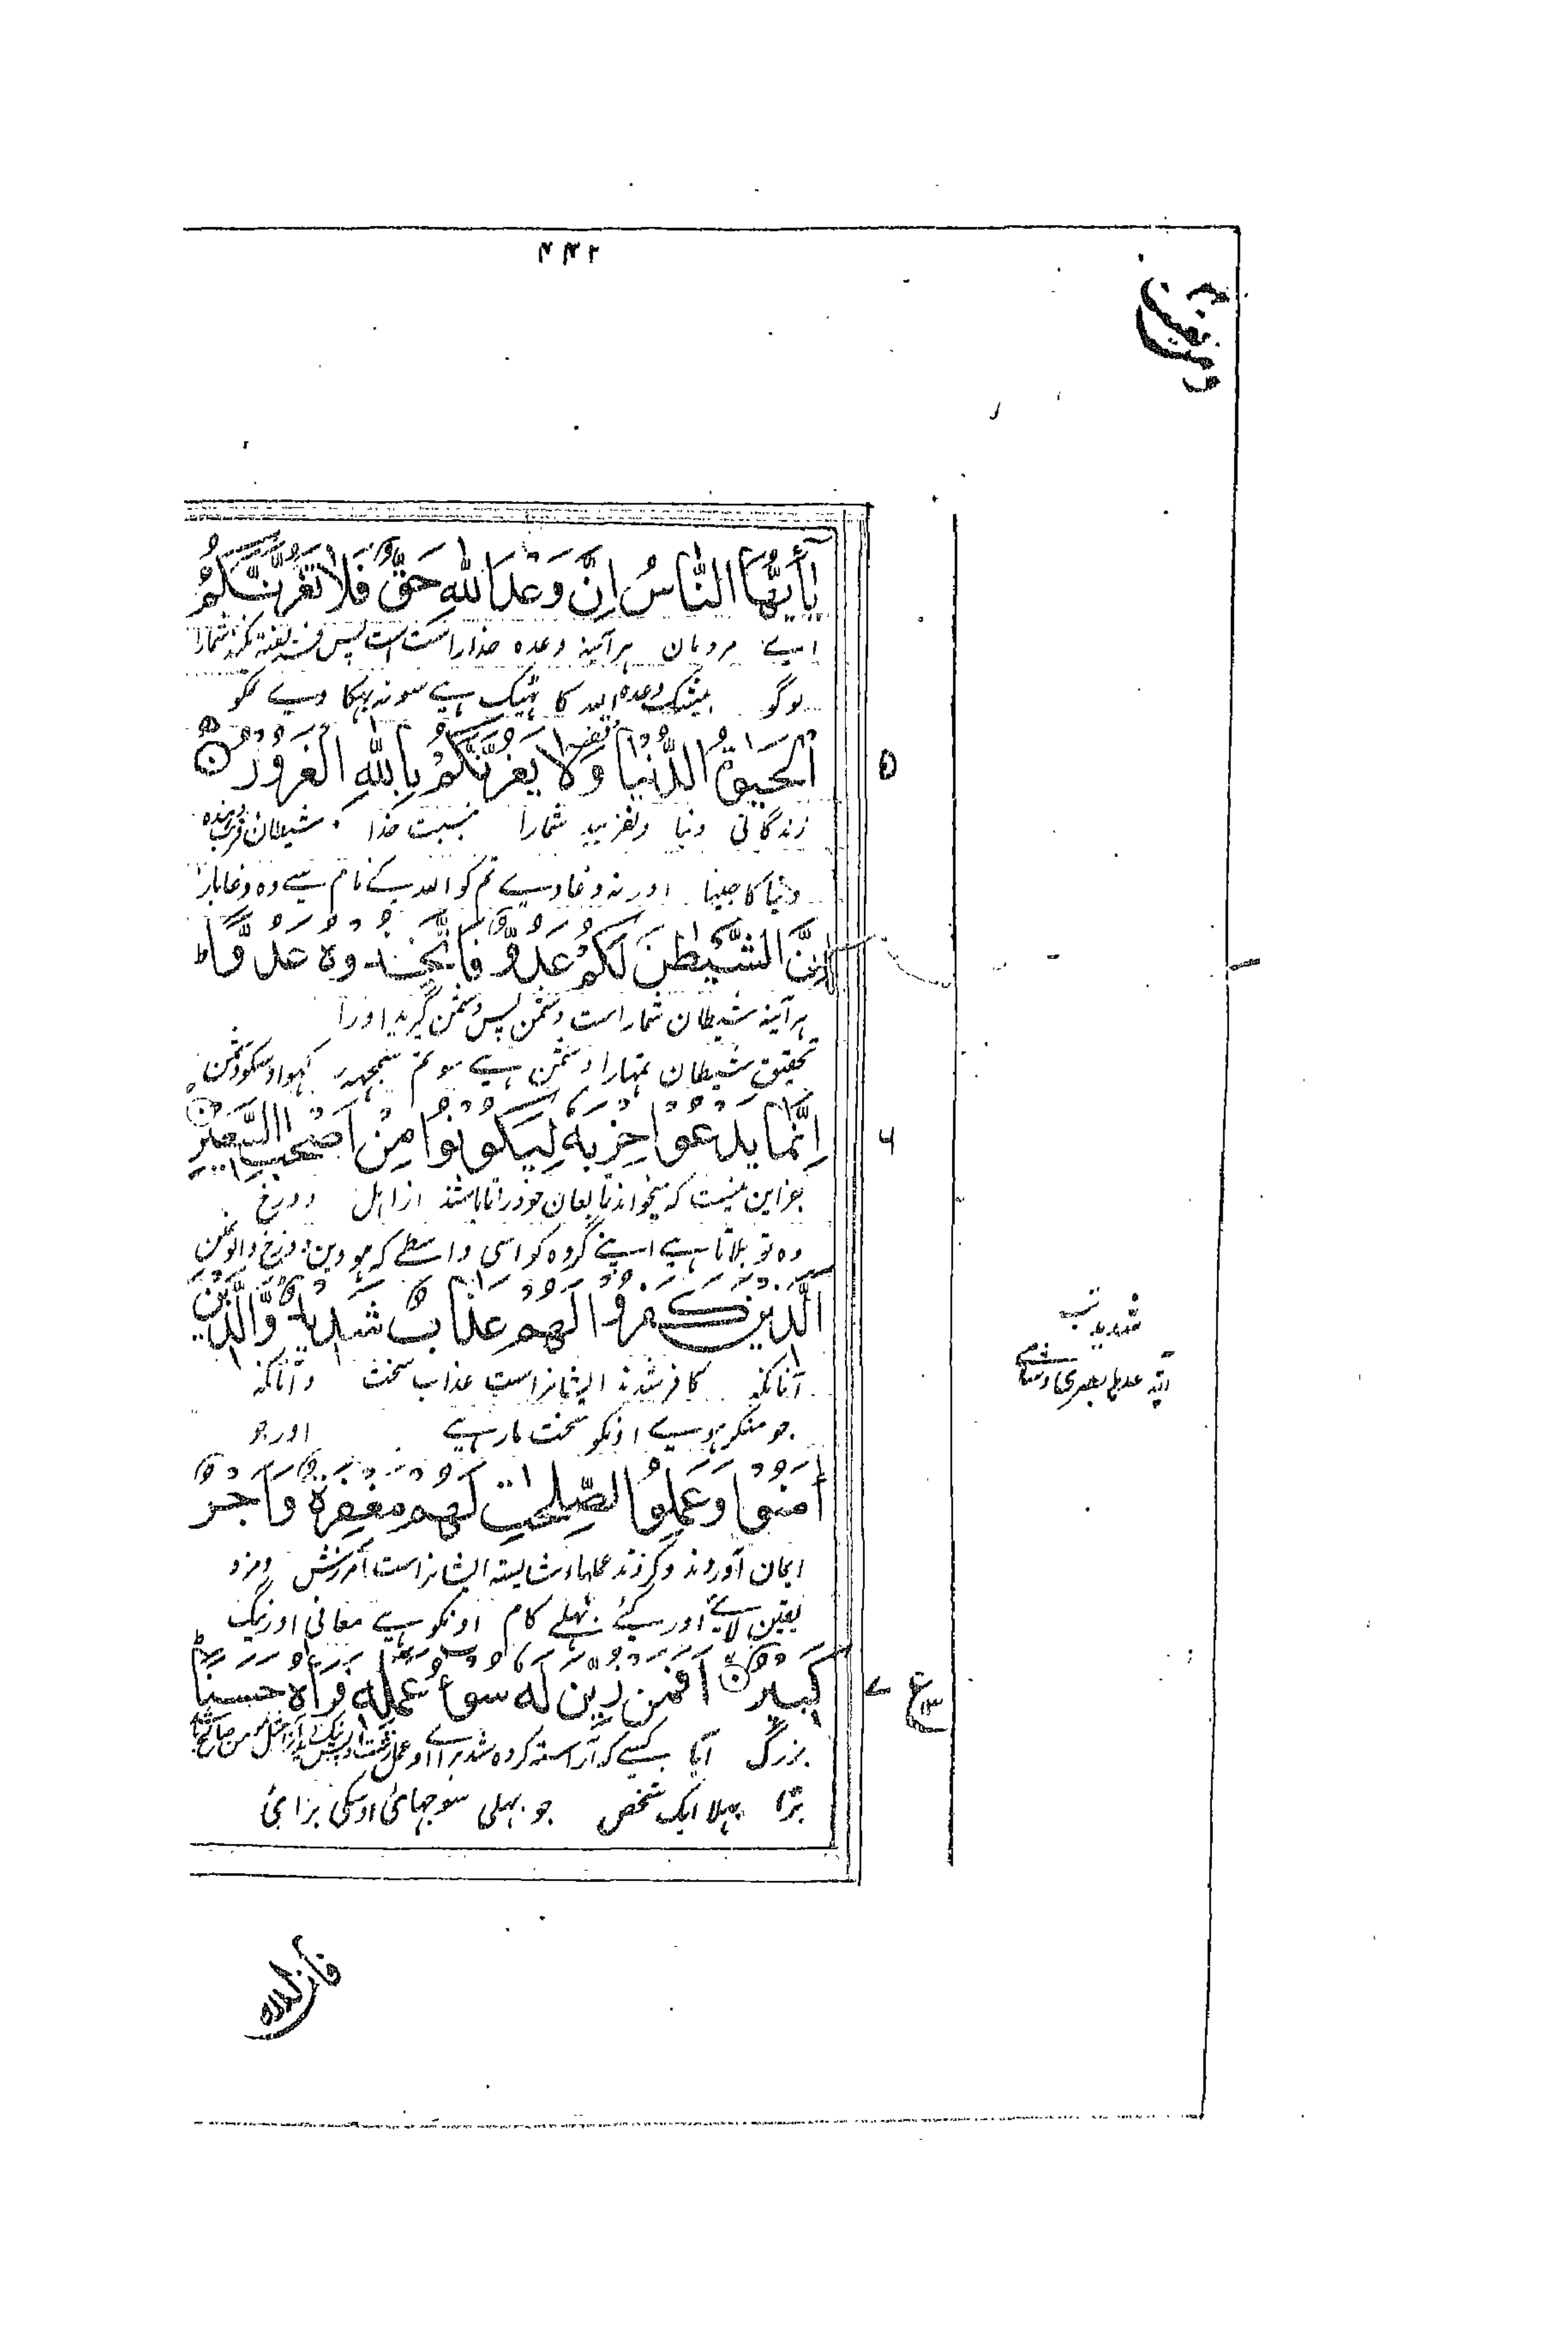 ۴۴۲
ومن یقنت
یٰۤاَیُّهَا النَّاسُ اِنَّ وَعْدَ اللّٰهِ حَقٌّ فَلَا تَغُرَّنَّكُمُ
اے مردمان ہرآینہ وعدہ خدا راست است پس فریفتہ نکند شمارا
لوگو بیشک وعدہ اللہ کا ٹھیک ہے سو نہ بہکا وے تمکو
الْحَیٰوةُ الدُّنْیَا وَلَا یَغُرَّنَّكُمْ بِاللّٰهِ الْغَرُوْرُ
۵
زندگانی دنیا ونفریبد شمارا بنسبت خدا شیطان فریب دہندہ
دنیا کا جینا اور نہ دغا دے تم کو اللہ کے نام سے وہ دغاباز
اِنَّ الشَّیْطٰنَ لَكُمْ عَدُوٌّ فَاتَّخِذُوْهُ عَدُوًّا ط
ہرآینہ شیطان شماراست دشمن پس دشمن گیرید اورا
تحقیق شیطان تمہارا دشمن ہے سو تم سمجھ رکہو اوسکو دشمن
اِنَّمَا یَدْعُوْا حِزْبَهٗ لِیَكُوْنُوْا مِنْ اَصْحٰبِ السَّعِیْرِ
۶
جز این نیست کہ میخواند تابعان خودرا تا باشند از اہل دوزخ
وہ تو بلاتا ہے اپنے گروہ کو اسی واسطے کہ ہووین دوزخ والونمین
اَلَّذِیْنَ كَفَرُوْا لَهُمْ عَذَابٌ شَدِیْدٌ وَّالَّذِیْنَ
شدید تب
آیة عدہا بصری وشامی
آنانکہ کافر شدند ایشانراست عذاب سخت وآنانکہ
جو منکر ہوے اونکو سخت مار ہے اور جو
اٰمَنُوْا وَعَمِلُوا الصّٰلِحٰتِ لَهُمْ مَّغْفِرَةٌ وَّاَجْرٌ
ایمان آوردند وکردند عملہاء شایستہ ایشانراست آمرزش ومزد
یقین لائے اور کئے بھلے کام اونکو ہے معافی اور نیگ
كَبِیْرٌ اَفَمَنْ زُیِّنَ لَهٗ سُوْٓءُ عَمَلِهٖ فَرَاٰهُ حَسَنًا ط
۷ ع
بزرگ آیا کسیکہ آراستہ کردہ شد برائے او عمل زشت او پس نیک
بڑا بھلا ایک شخص جو بہلی سوجہائی اوسکی برائی
فان اللہ